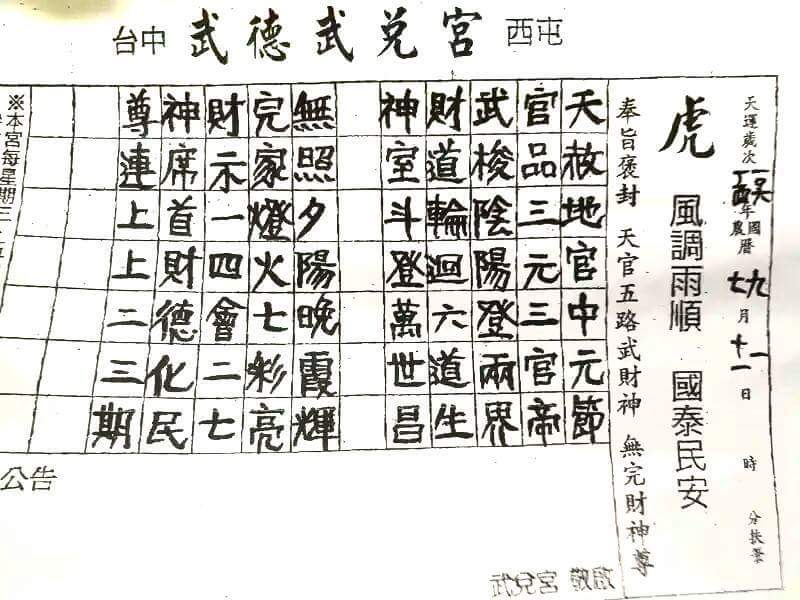 台中 武德武兌宮 西屯
天運歲次 年 國農曆 七九月 十一日 時 分扶筆
虎 風調雨順 國泰民安
奉旨褒封 天官五路武財神 無完財神尊
天赦地官中元節
官品三元三官帝
武梭陰陽登兩界
財道輪迴六道生
神室斗登萬世昌
無照夕陽晚霞輝
完家燈火七彩亮
財示一四會二七
神席首財德化民
尊連上上二三期
※本宮每星期三
公告
武兌宮 敬啟